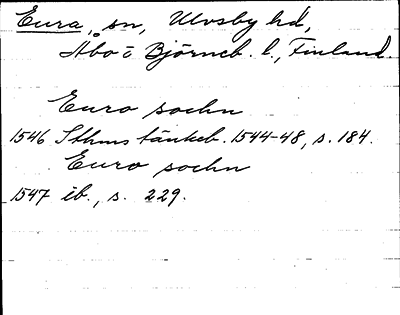 Eura, sn, Ulvsby hd,
Åbo o Björneb. l., Finland.
Euro sochn
1546 Sthms tänkeb. 1544-48, s. 184.
Euro sochn
1547 ib., s. 229.